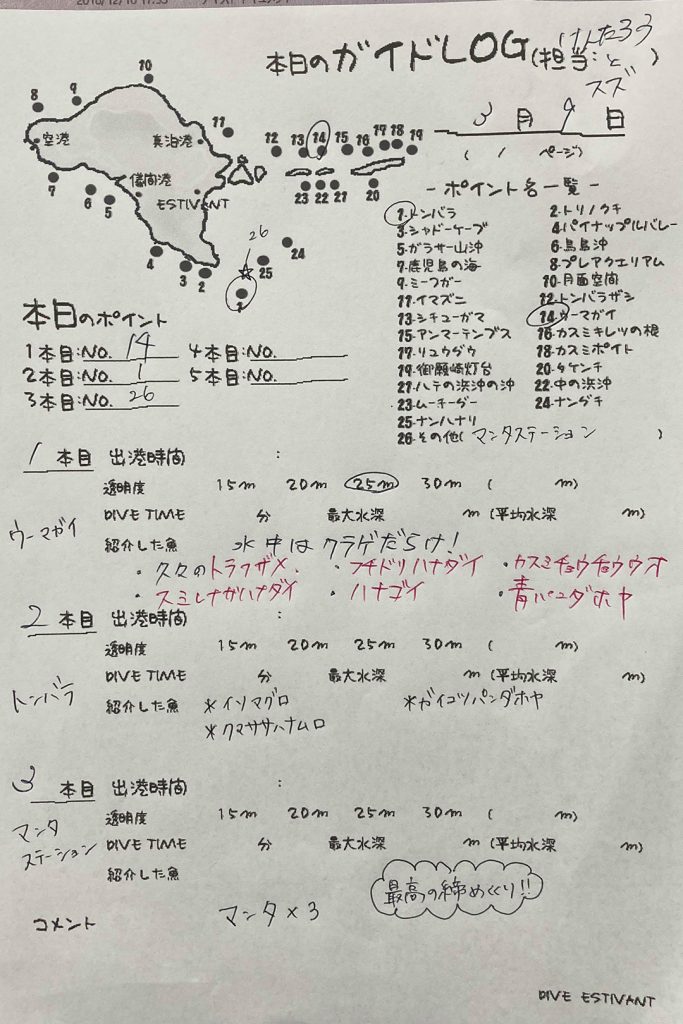 本日のガイドLOG(担当: けんたろう と スズ )
3 月 9 日
( / ページ)
10
8 9
空港
真泊港
11 12 13 14 15 16 17 18 19
7 6 5
儀間港
ESTIVANT
23 22 21 20
26
24
25
4 3 2 1
- ポイント名一覧 -
1-トンバラ 2-トリノクチ
3-シャドーケーブ 4-パイナップルバレー
5-ガラサー山沖 6-鳥島沖
7-鹿児島の海 8-プレアクエリアム
9-ミーフガー 10-月面空間
11-イマズニ 12-トンバラザシ
13-シチューガマ 14-ウーマガイ
15-アンマーテンブス 16-カスミキレツの根
17-リュウグウ 18-カスミポイント
19-御願崎灯台 20-タケンチ
21-ハテの浜沖の沖 22-中の浜沖
23-ムーチーグー 24-ナングチ
25-ナンハナリ
26-その他( マンタステーション )
本日のポイント
1本目:NO. 14 4本目:NO.
2本目:NO. 1 5本目:NO.
3本目:NO. 26
1 本目 出港時間 :
透明度 15m 20m 25m 30m ( m)
DIVE TIME 分 最大水深 m (平均水深 m)
ウーマガイ
紹介した魚 水中はクラゲだらけ!
・久々のトラフザメ. ・フチドリハナダイ ・カスミチョウチョウウオ
・スミレナガハナダイ ・ハナゴイ ・青パンダホヤ
2 本目 出港時間 :
透明度 15m 20m 25m 30m ( m)
DIVE TIME 分 最大水深 m (平均水深 m)
トンバラ
紹介した魚 *イソマグロ *ガイコツパンダホヤ
*クマササハナムロ
3 本目 出港時間 :
透明度 15m 20m 25m 30m ( m)
マンタステーション
DIVE TIME 分 最大水深 m (平均水深 m)
紹介した魚
最高の締めくくり!!
コメント マンタ×3
DIVE ESTIVANT